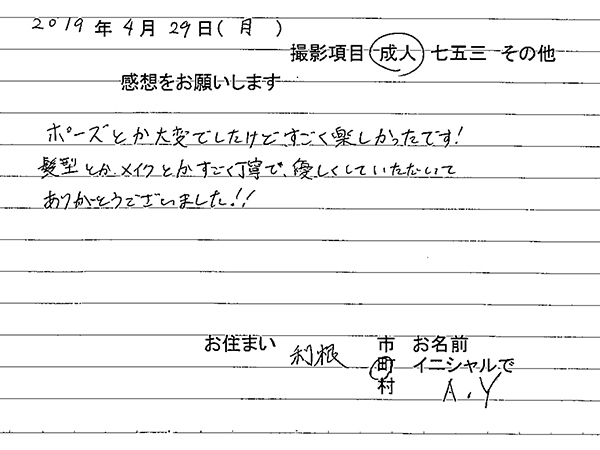 2019年4月29日(月)
撮影項目 成人 七五三 その他
感想をお願いします
ポーズとか大変でしたけどすごく楽しかったです!
髪型とかメイクとかすごく丁寧で、優しくしていただいて
ありがとうございました!!
お住まい 利根 市 お名前
町 イニシャルで
村 A.Y